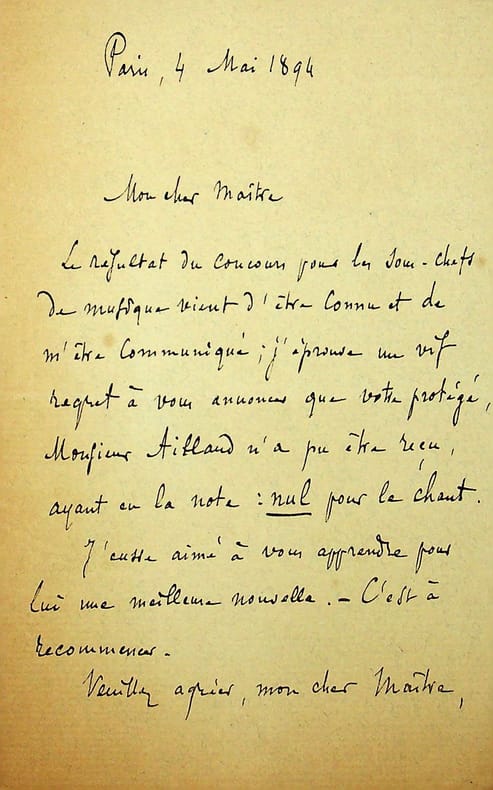 Paris, 4 Mai 1894
Mon cher Maître
Le résultat du concours pour les sous-chefs
de musique vient d'être connu et de
m'être communiqué ; j'éprouve un vif
regret à vous annoncer que votre protégé,
Monsieur n'a pu être reçu,
ayant eu la note : nul pour le chant.
J'eusse aimé à vous apprendre pour
lui une meilleure nouvelle. – C'est à
recommencer.
Veuillez agréer, mon cher Maître,